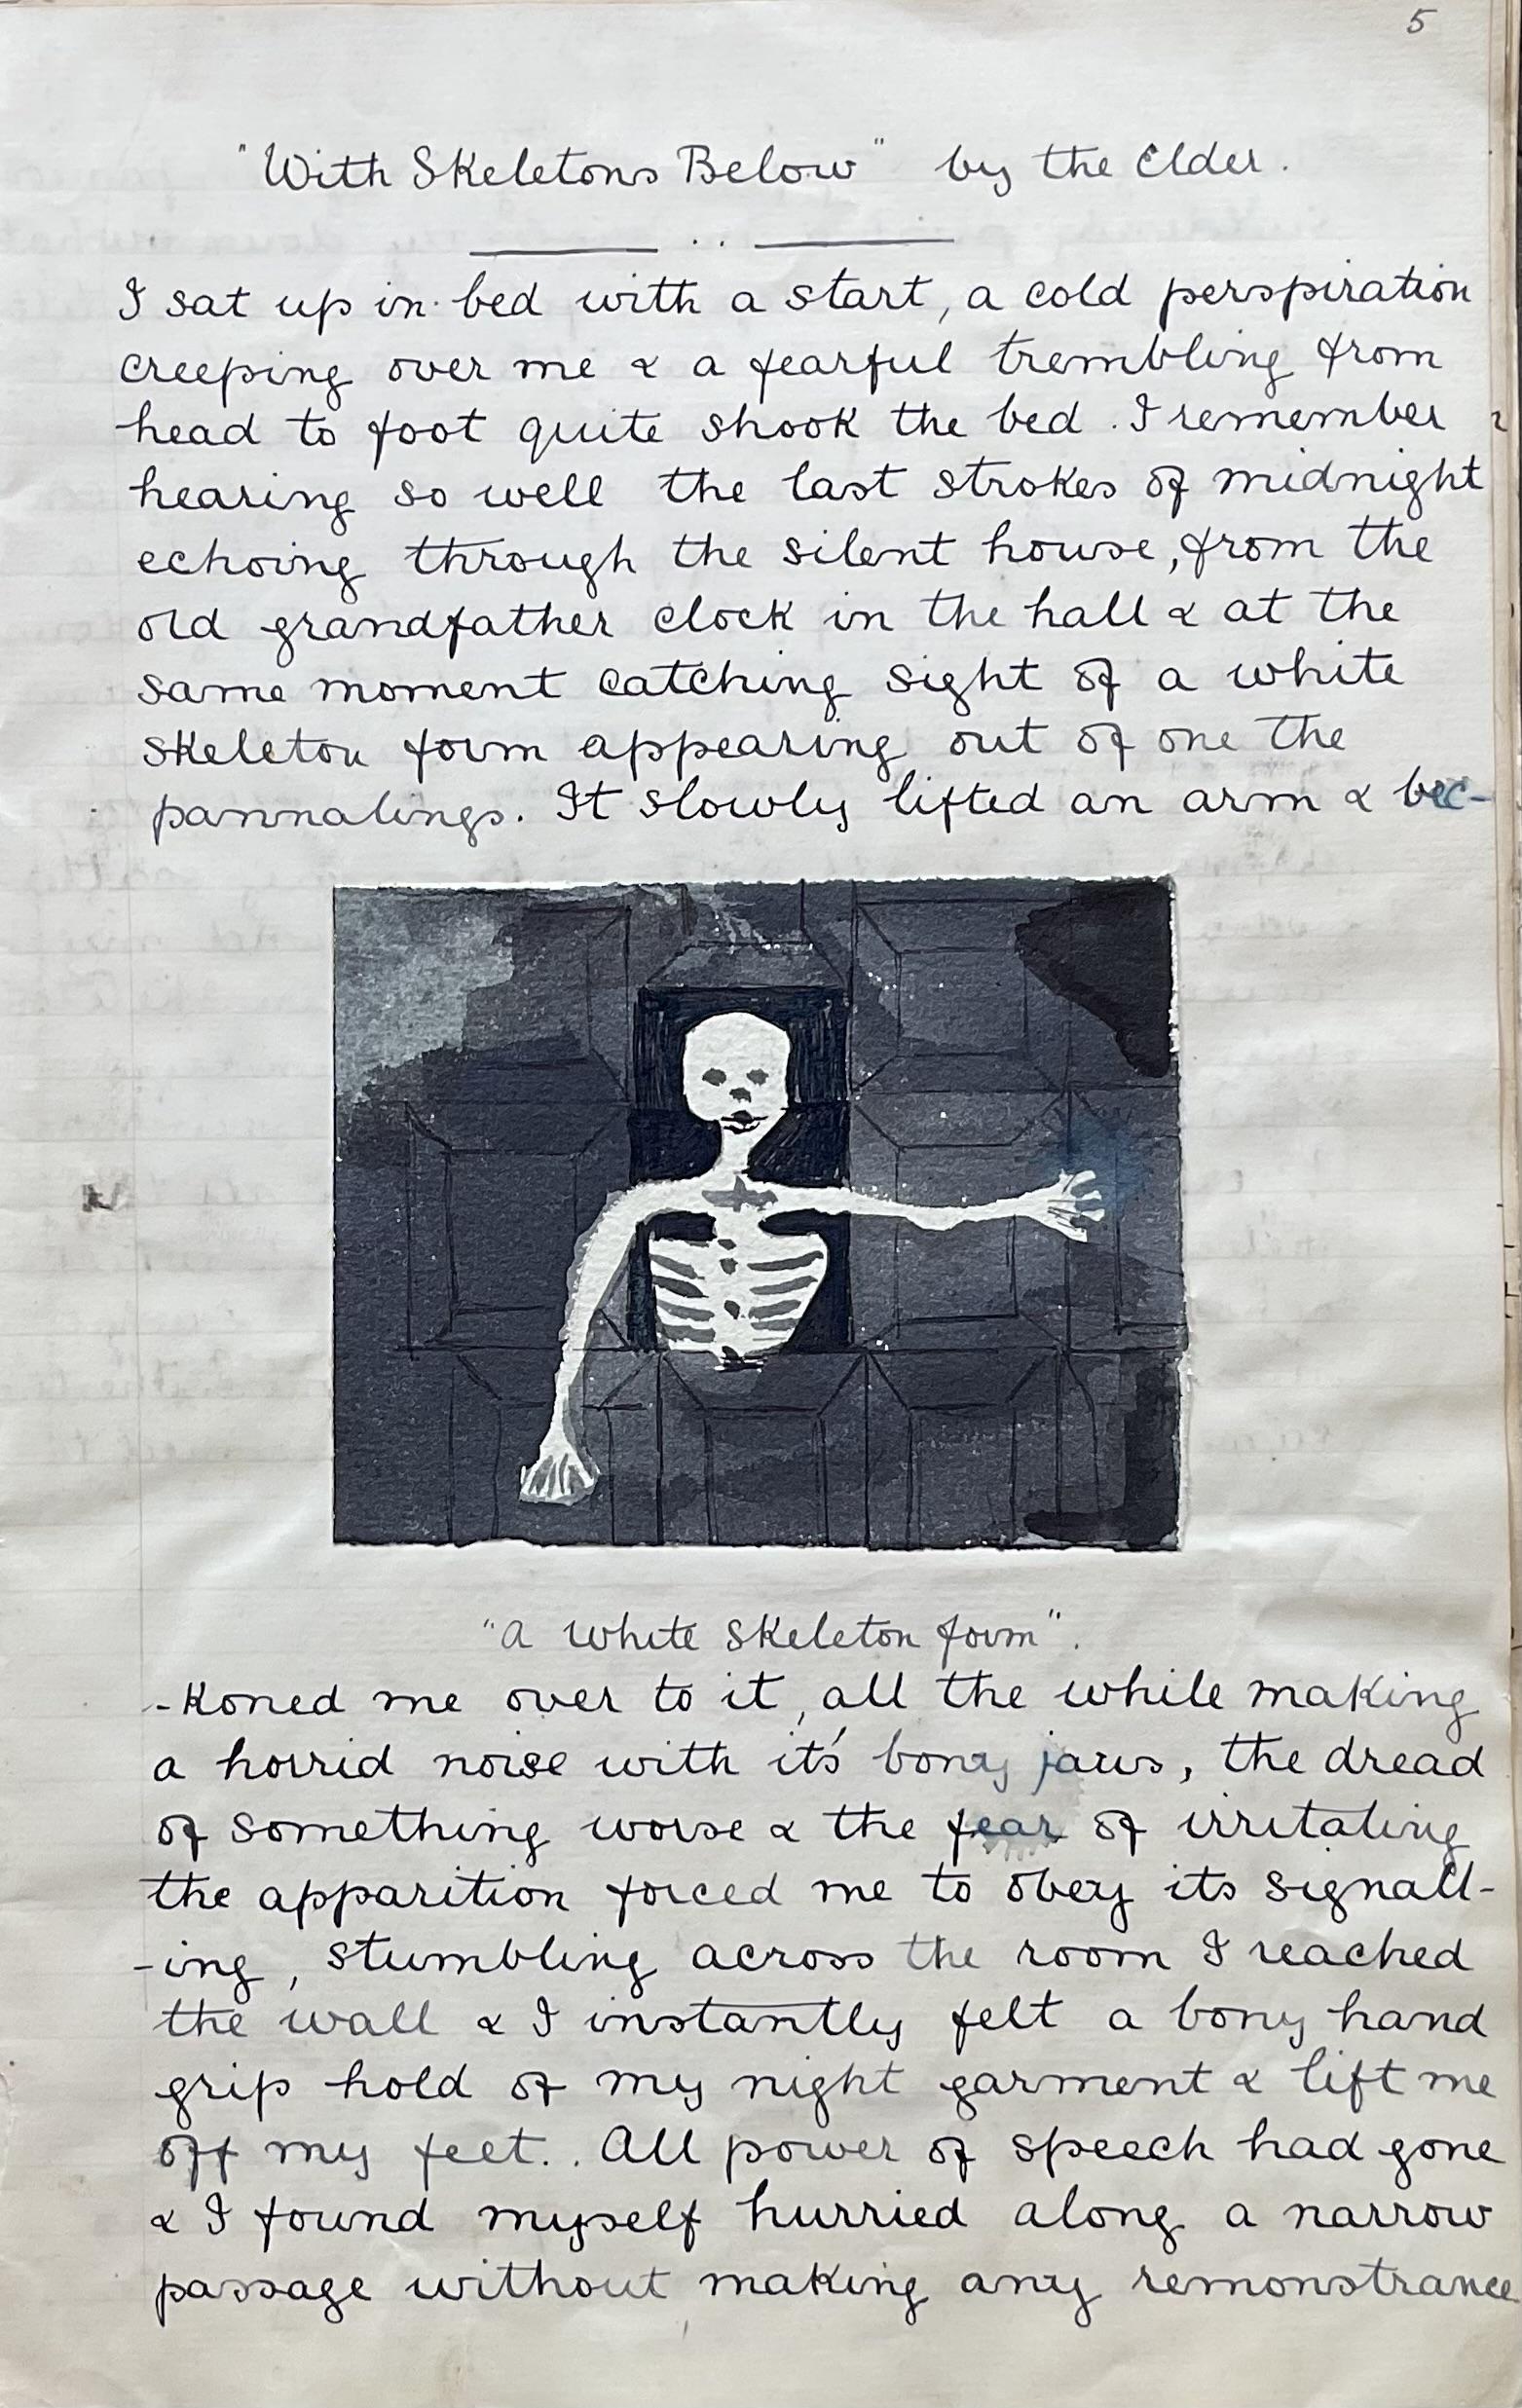 5
"With Skeletons Below" by the Elder.
I sat up in bed with a start, a cold perspiration
creeping over me & a fearful trembling from
head to foot quite shook the bed. I remember
hearing so well the last strokes of midnight
echoing through the silent house, from the
old grandfather clock in the hall & at the
same moment catching sight of a white
skeleton form appearing out of one the
pannalings. It slowly lifted an arm & bec-
"A White Skeleton form".
-koned me over to it, all the while making
a horrid noise with it's bony jaws, the dread
of something worse & the fear of irritating
the apparition forced me to obey its signall-
-ing, stumbling across the room I reached
the wall & I instantly felt a bony hand
grip hold of my night garment & lift me
off my feet.. All power of speech had gone
& I found myself hurried along a narrow
passage without making any remonstrance